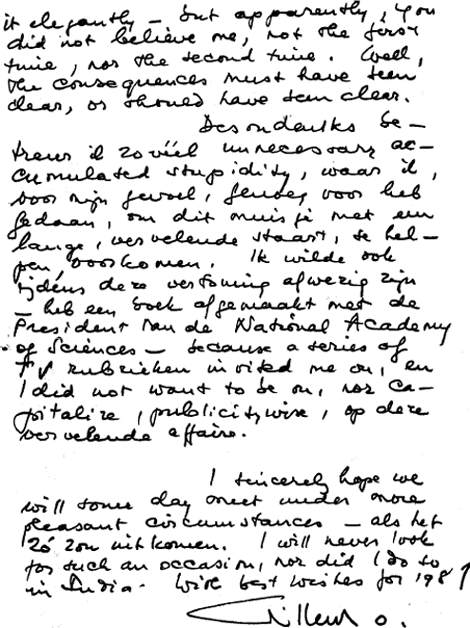 it elegantly – but apparently, you
did not believe me, not the first
time, nor the second time. Well,
the consequences must have been
clear, or should have been clear.
Desondanks be-
treur ik zo véél unnecessary ac-
cumulated stupidity, waar ik,
voor mijn gevoel, genoeg voor heb
gedaan, om dit muisje met een
lange, vervelende staart, te hel-
pen voorkomen. Ik wilde ook
tijdens deze vertoning afwezig zijn
– heb een boek afgemaakt met de
President van de National Academy
of Sciences – because a series of
TV rubrieken invited me on, en
I did not want to be on, nor ca-
pitalize, publicitywise, op deze
vervelende affaire.
I sincerely hope we
will some day meet under more
pleasant circumstances – als het
zó zou uitkomen. I will never look
for such an occasion, nor did I do so
in India. With best wishes for 198
Willem O.